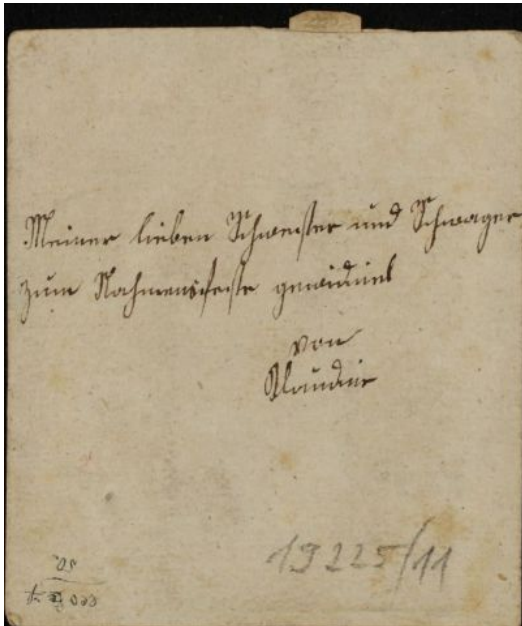 Meiner lieben Schwester und Schwager
zum Nahmensfeste gewidmet
von
Klaudine
19225/11